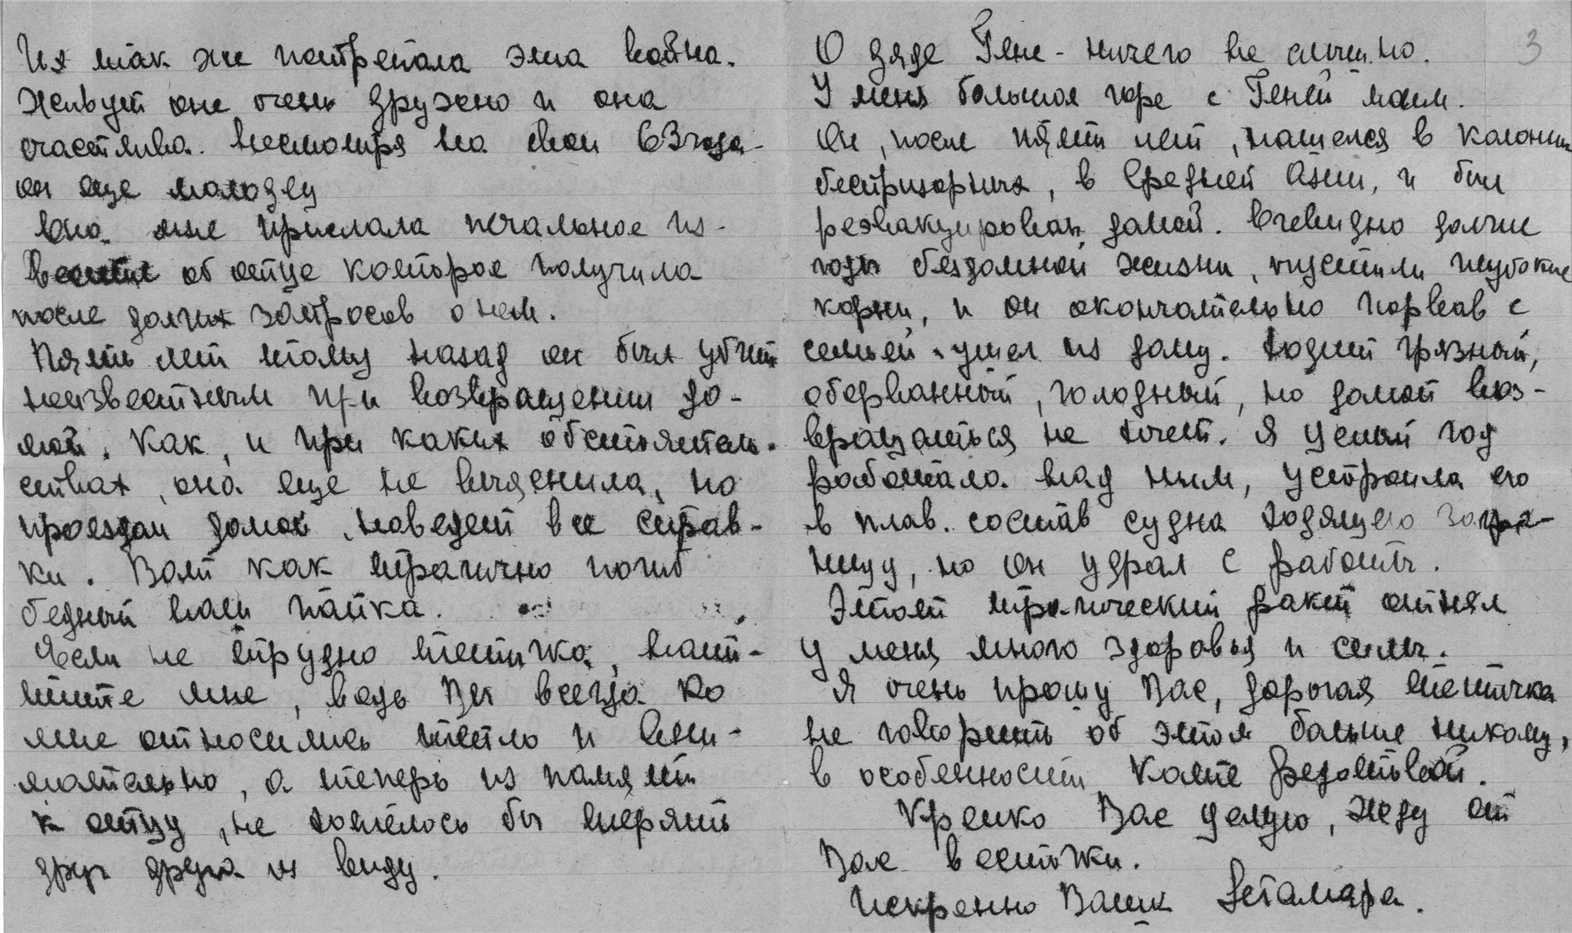 Их так же потрепала эта война.
Живут они очень дружно и она
счастлива. Несмотря на свои 63 года -
он еще молодец
Она мне прислала печальное из-
вестие об отце которое получила
после долгих запросов о нем.
Пять лет тому назад он был убит
неизвестным при возвращении до-
мой. Как, и при каких обстоятель-
ствах, она еще не выяснила, но
проездом домой, наведет все справ-
ки. Вот как трагично погиб
бедный наш папка.
Если не трудно тетичка, напи-
шите мне, ведь Вы всегда ко
мне относились тепло и вни-
мательно, а теперь из памяти
к отцу, не хотелось бы терять
друг друга из виду.
3
О дяде Гене - ничего не слышно.
У меня большое горе с Геней моим.
Он, после пяти лет, нашелся в колонии
беспризорных, в Средней Азии, и был
реэвакуирован домой. Очевидно долгие
годы бездомной жизни, пустили глубокие
корни, и он окончательно порвав с
семьей ушел из дому. Ходит грязный,
оборванный, голодный, но домой воз-
вращаться не хочет. Я целый год
работала над ним, устроила его
в плав. состав судна ходящего загра-
ницу, но он удрал с работы.
Этот трагический факт отнял
у меня много здоровья и силы.
Я очень прошу Вас, дорогая тетичка
не говорить об этом больше никому,
в особенности Кате
Крепко Вас целую, жду от
Вас весточки.
Искренно Ваша